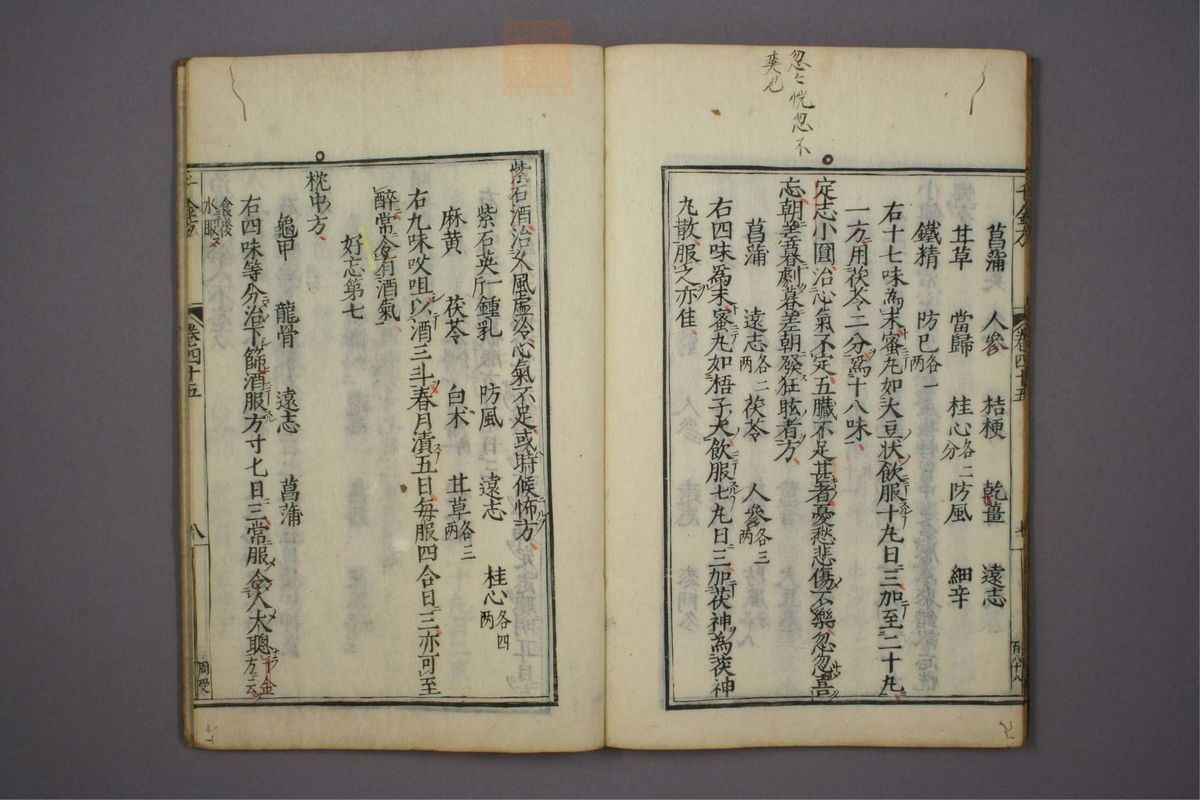 忽忽恍忽不
爽也
菖蒲 人參 桔梗 乾薑 遠志
甘草 當歸 桂心各二分 防風 細辛
鐵精 防已各一兩
右十七味為末蜜丸如大豆状飲服十丸日三加至二十丸
一方用茯苓二分為十八味
定志小圓治心氣不定五臓不足甚者憂愁悲傷不樂忽忽喜
忘朝差暮劇暮差朝發狂眩者方
菖蒲 遠志各二兩 茯苓 人參各三兩
右四味為末蜜丸如梧子大飲服七丸日三加茯神為茯神
丸散服之亦佳
卷四十五
紫石酒治久風虛冷心氣不足或時候怖方
紫石英一斤 鍾乳 防風 遠志 桂心各四兩
麻黄 茯苓 白术 甘草各三兩
右九味㕮咀以酒三斗春月漬五日每服四合日三亦可至
醉常令有酒氣
好忘第七
枕中方
龜甲 龍骨 遠志 菖蒲
右四味等分治下篩酒服方寸匕日三常服令人大聰千金方云
食後水服
千金方 卷四十五 八